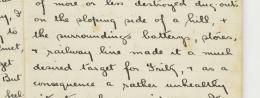 of more or less destroyed dug-outs
on the sloping side of a hill, &
the surroundings battery, stores,
& railway line made it a much
desired target for Fritz, & as a
consequence a rather unhealthy